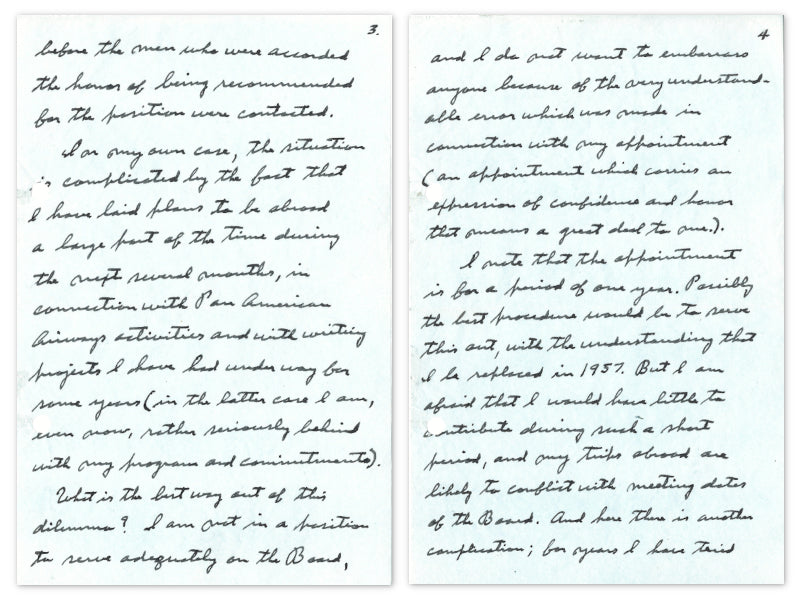 3.
before the men who were accorded
the honor of being recommended
for the position were contacted.
In my own case, the situation
is complicated by the fact that
I have laid plans to be abroad
a large part of the time during
the next several months, in
connection with Pan American
Airways activities and with writing
projects I have had under way for
some years (in the latter case I am,
even now, rather seriously behind
with my program and commitments).
What is the best way out of this
dilemma? I am not in a position
to serve adequately on the Board,
4
and I do not want to embarrass
anyone because of the very understand-
able error which was made in
connection with my appointment
(an appointment which carries an
expression of confidence and honor
that means a great deal to me.).
I note that the appointment
is for a period of one year. Possibly
the best procedure would be to serve
this out, with the understanding that
I be replaced in 1957. But I am
afraid that I would have little to
contribute during such a short
period, and my trips abroad are
likely to conflict with meeting dates
of the Board. And here there is another
complication; for years I have tried